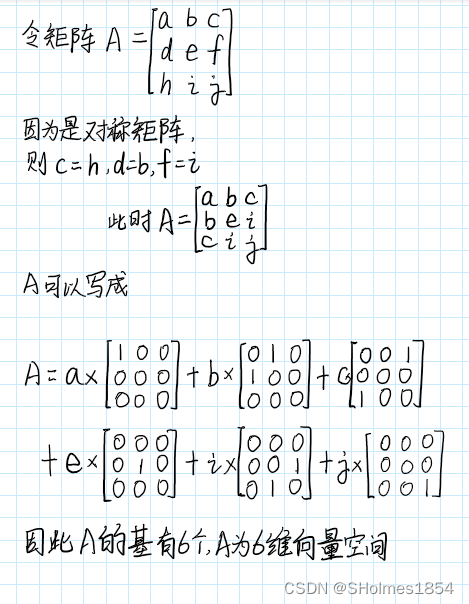 令矩阵 A = [a b c
d e f
h i j]
因为是对称矩阵,
则 c=h,d=b,f=i
此时 A= [a b c
b e i
c i j]
A可以写成
A=a× [1 0 0 +b× [0 1 0 +c [0 0 1
0 0 0 1 0 0 0 0 0
0 0 0] 0 0 0] 1 0 0]
+e× [0 0 0 +i× [0 0 0 +j× [0 0 0
0 1 0 0 0 1 0 0 0
0 0 0] 0 1 0] 0 0 1]
因此 A的基有6个,A为6维向量空间
CSDN @SHolmes1854